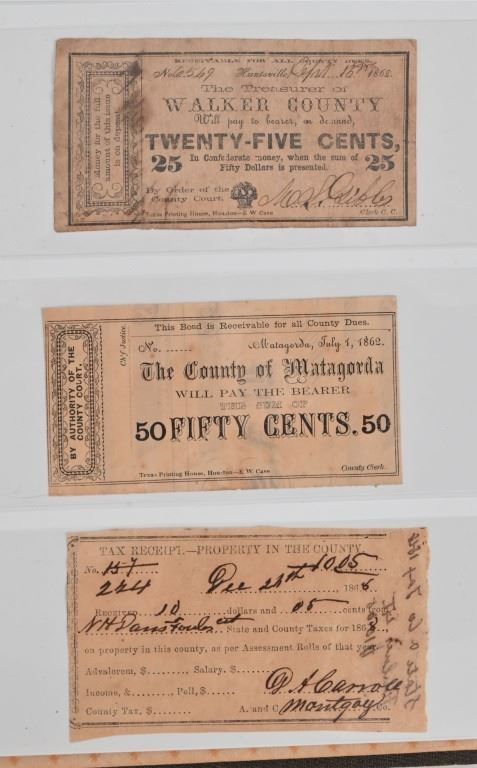 RECEIVABLE FOR ALL COUNTY DUES.
Huntsville, Sept. 15th 186
The Treasurer of
WALKER COUNTY
Will pay to bearer, on demand,
TWENTY-FIVE CENTS,
25 In Confederate money, when the sum of 25
Fifty Dollars is presented.
By Order of the
County Court.
Clerk C. C.
Texas Printing House, Houston—E W Cave
Money for the full
amount of this issue
is on deposit.
This Bond is Receivable for all County Dues.
No. ......
Matagorda, July 1, 1862.
The County of Matagorda
WILL PAY THE BEARER
THE SUM OF
50 FIFTY CENTS. 50
Texas Printing House, Houston—E W Cave
County Clerk.
Chf Justice.
BY AUTHORITY OF THE
COUNTY COURT.
TAX RECEIPT.—PROPERTY IN THE COUNTY
No. 157 10.05
224 Dec 24th 186
RECEIVED 10 dollars and 05 cents from
State and County Taxes for 186
on property in this county, as per Assessment Rolls of that year.
Advalorem, $ Salary, $
Income, & Poll, $
D A Carroll
County Tax, $ A. and C Montgoy Co.